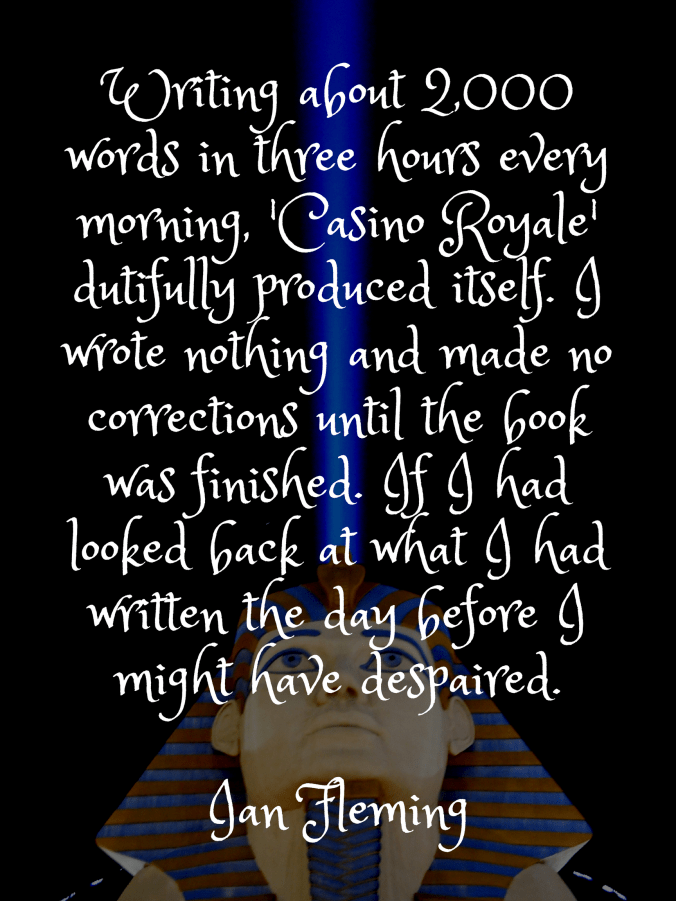 Writing about 2,000
words in three hours every
morning, 'Casino Royale'
dutifully produced itself. I
wrote nothing and made no
corrections until the book
was finished. If I had
looked back at what I had
written the day before I
might have despaired.
Ian Fleming